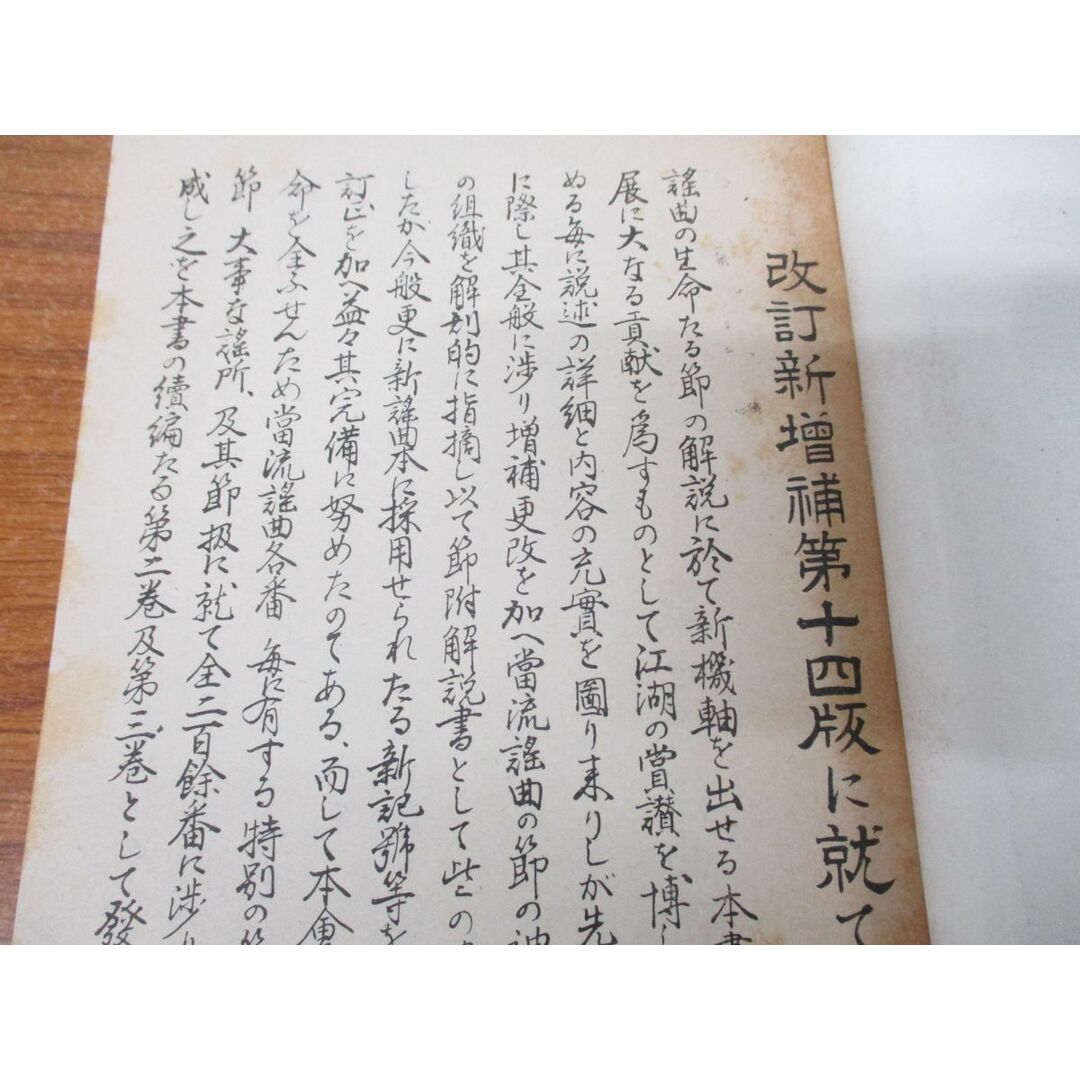 改訂新增補第十四版に就て
謡曲の生命たる節の解説に於て新機軸を出せる本書
展に大なる貢献を爲すものとして江湖の賞讃を博し
ぬる毎に説述の詳細と内容の充實を圖り来りしが先
に際し其全般に渉り增補更改を加へ當流謡曲の節の
の組織を解剖的に指摘し以て節附解説書として此の
したが今般更に新謡曲本に採用せられたる新記號等を
訂正を加へ益々其完備に努めたのである、而して本會
命を全ふせんため當流謡曲各番毎に有する特別の節
節大事な謡所、及其節扱に就て全二百餘番に渉り
成し之を本書の續編たる第二巻及第三巻として發